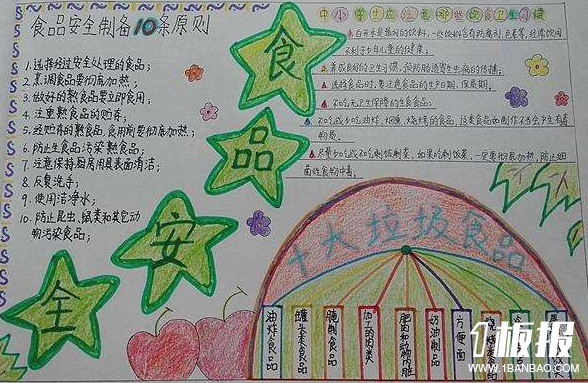 食品安全制备10条原则
1.选择经过安全处理的食品；
2.烹调食品要彻底加热；
3.做好的熟食品要立即食用；
4.注重熟食品的贮存；
5.经贮存的熟食品，食用前要彻底加热；
6.防止生食品污染熟食品；
7.注意保持厨房用具表面清洁；
8.反复洗手；
9.使用洁净水；
10.防止昆虫、鼠类和其它动
物污染食品；
食
品
安
全
中小学生应注意哪些饮食卫生习惯
白开水是最好的饮料，一些饮料含有防腐剂、色素等，经常饮用
不利于少年儿童的健康。
养成良好的卫生习惯，预防肠道寄生虫病的传播。
选择食品时，要注意食品的生产日期、保质期。
不吃无卫生保障的生食食品。
不吃或少吃油炸、烟熏、烧烤的食品，这类食品如制作不当会产生有毒
物质。
尽量少吃或不吃剩饭剩菜，如果吃剩饭菜，一定要彻底加热，防止细
菌性食物中毒。
十大垃圾食品
油炸食品
罐头类食品
腌制食品
加工的肉类
肥肉和动物内脏
奶油制品
方便面
烧烤类食品
板报
WWW.1BANBAO.COM